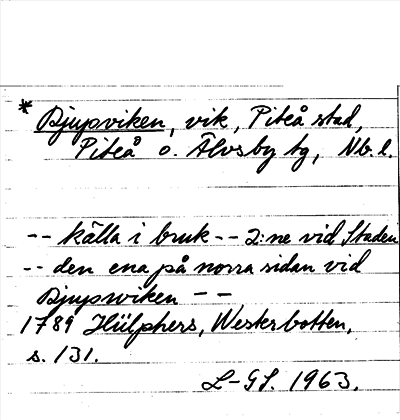 * Djupviken, vik, Piteå stad,
Piteå o. Älvsby tg, Nb. l.
-- källa i bruk -- 2:ne vid Staden
-- den ena på norra sidan vid
Djupswiken --
1789 Hülphers, Westerbotten,
s. 131.
L-GS. 1963.